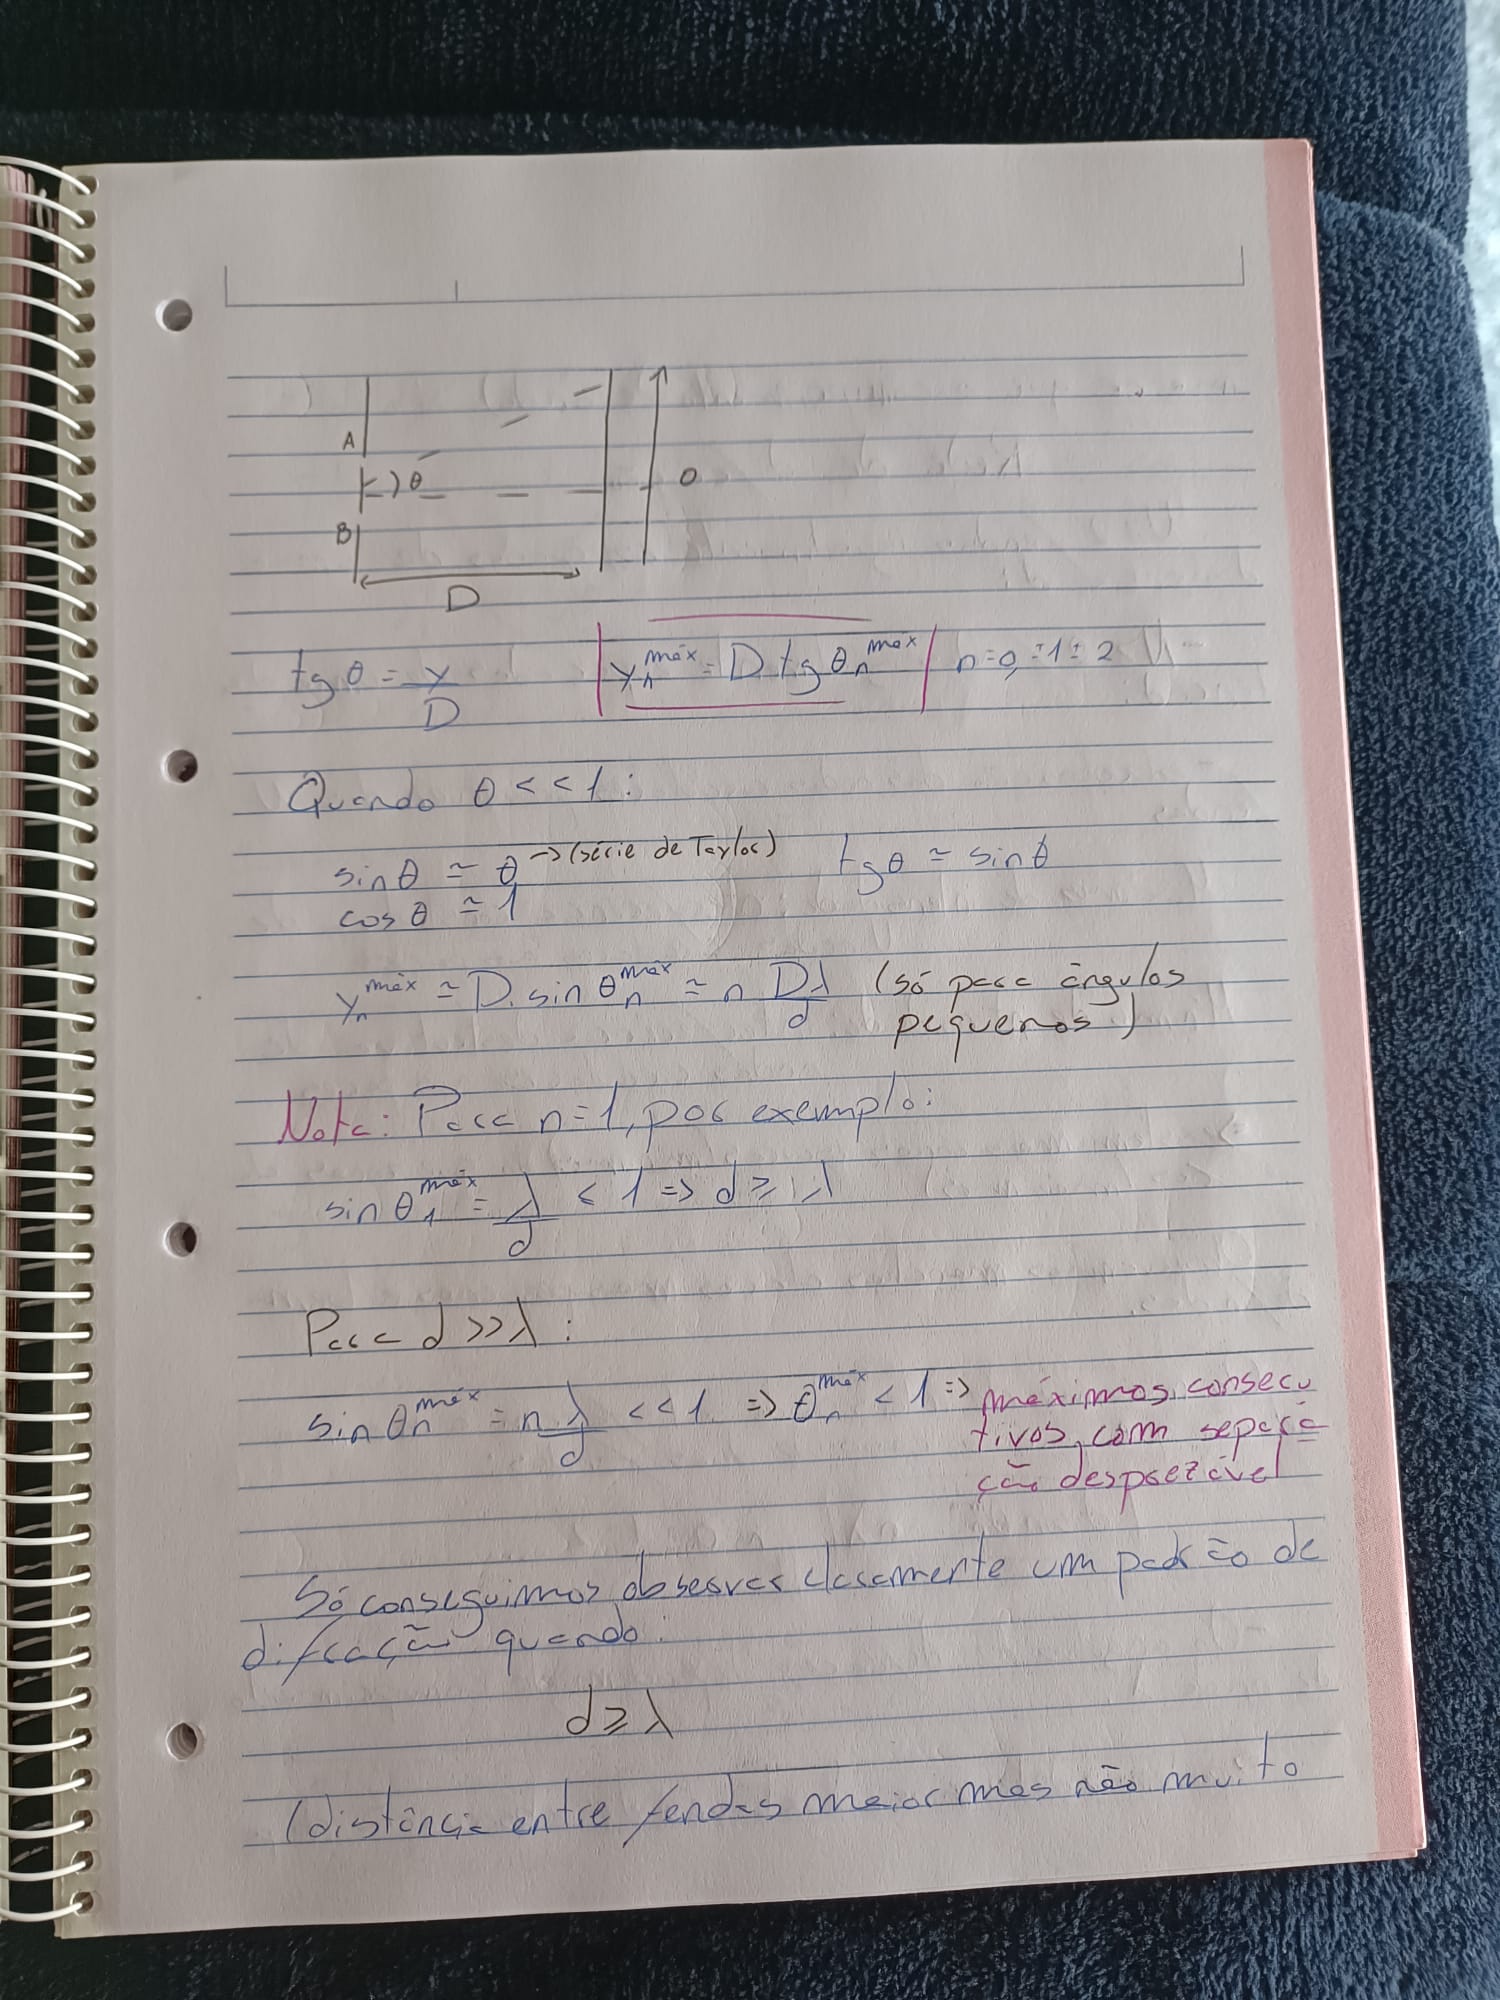 A
θ
O
B
D
tg θ = y/D  yₙ^máx = D tg θₙ^max  n = 0, ±1 ± 2
Quando θ << 1:
sin θ ≃ θ → (série de Taylor)  tg θ ≃ sin θ
cos θ ≃ 1
yₙ^máx ≃ D. sin θₙ^máx ≃ n Dλ/d (só para ângulos
pequenos)
Nota: Para n = 1, por exemplo:
sin θ₁^máx = λ/d < 1 => d ⩾ λ
Para d >> λ:
sin θₙ^máx = n λ/d << 1 => θₙ^máx < 1 => máximos consecu
tivos com separa
ção desprezável
Só conseguimos observar claramente um padrão de
difração quando:
d ⩾ λ
(distância entre fendas maior mas não muito